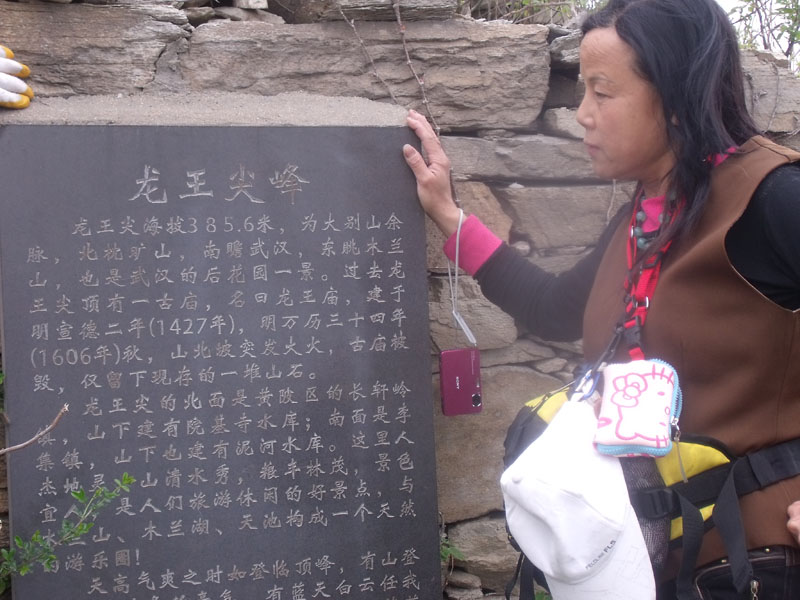 龙王尖峰
龙王尖海拔385.6米，为大别山余
脉，北枕矿山，南瞻武汉，东眺木兰
山，也是武汉的后花园一景。过去龙
王尖顶有一古庙，名曰龙王庙，建于
明宣德二年(1427年)，明万历三十四年
(1606年)秋，山北坡突发大火，古庙被
毁，仅留下现存的一堆山石。
龙王尖的北面是黄陂区的长轩岭
镇，山下建有院基寺水库；南面是李
集镇，山下也建有泥河水库。这里人
杰地灵，山清水秀，粮丰林茂，景色
宜人，是人们旅游休闲的好景点，与
木兰山、木兰湖、天池构成一个天然
的游乐园！
天高气爽之时如登临顶峰，有山登
有蓝天白云任我
SONY